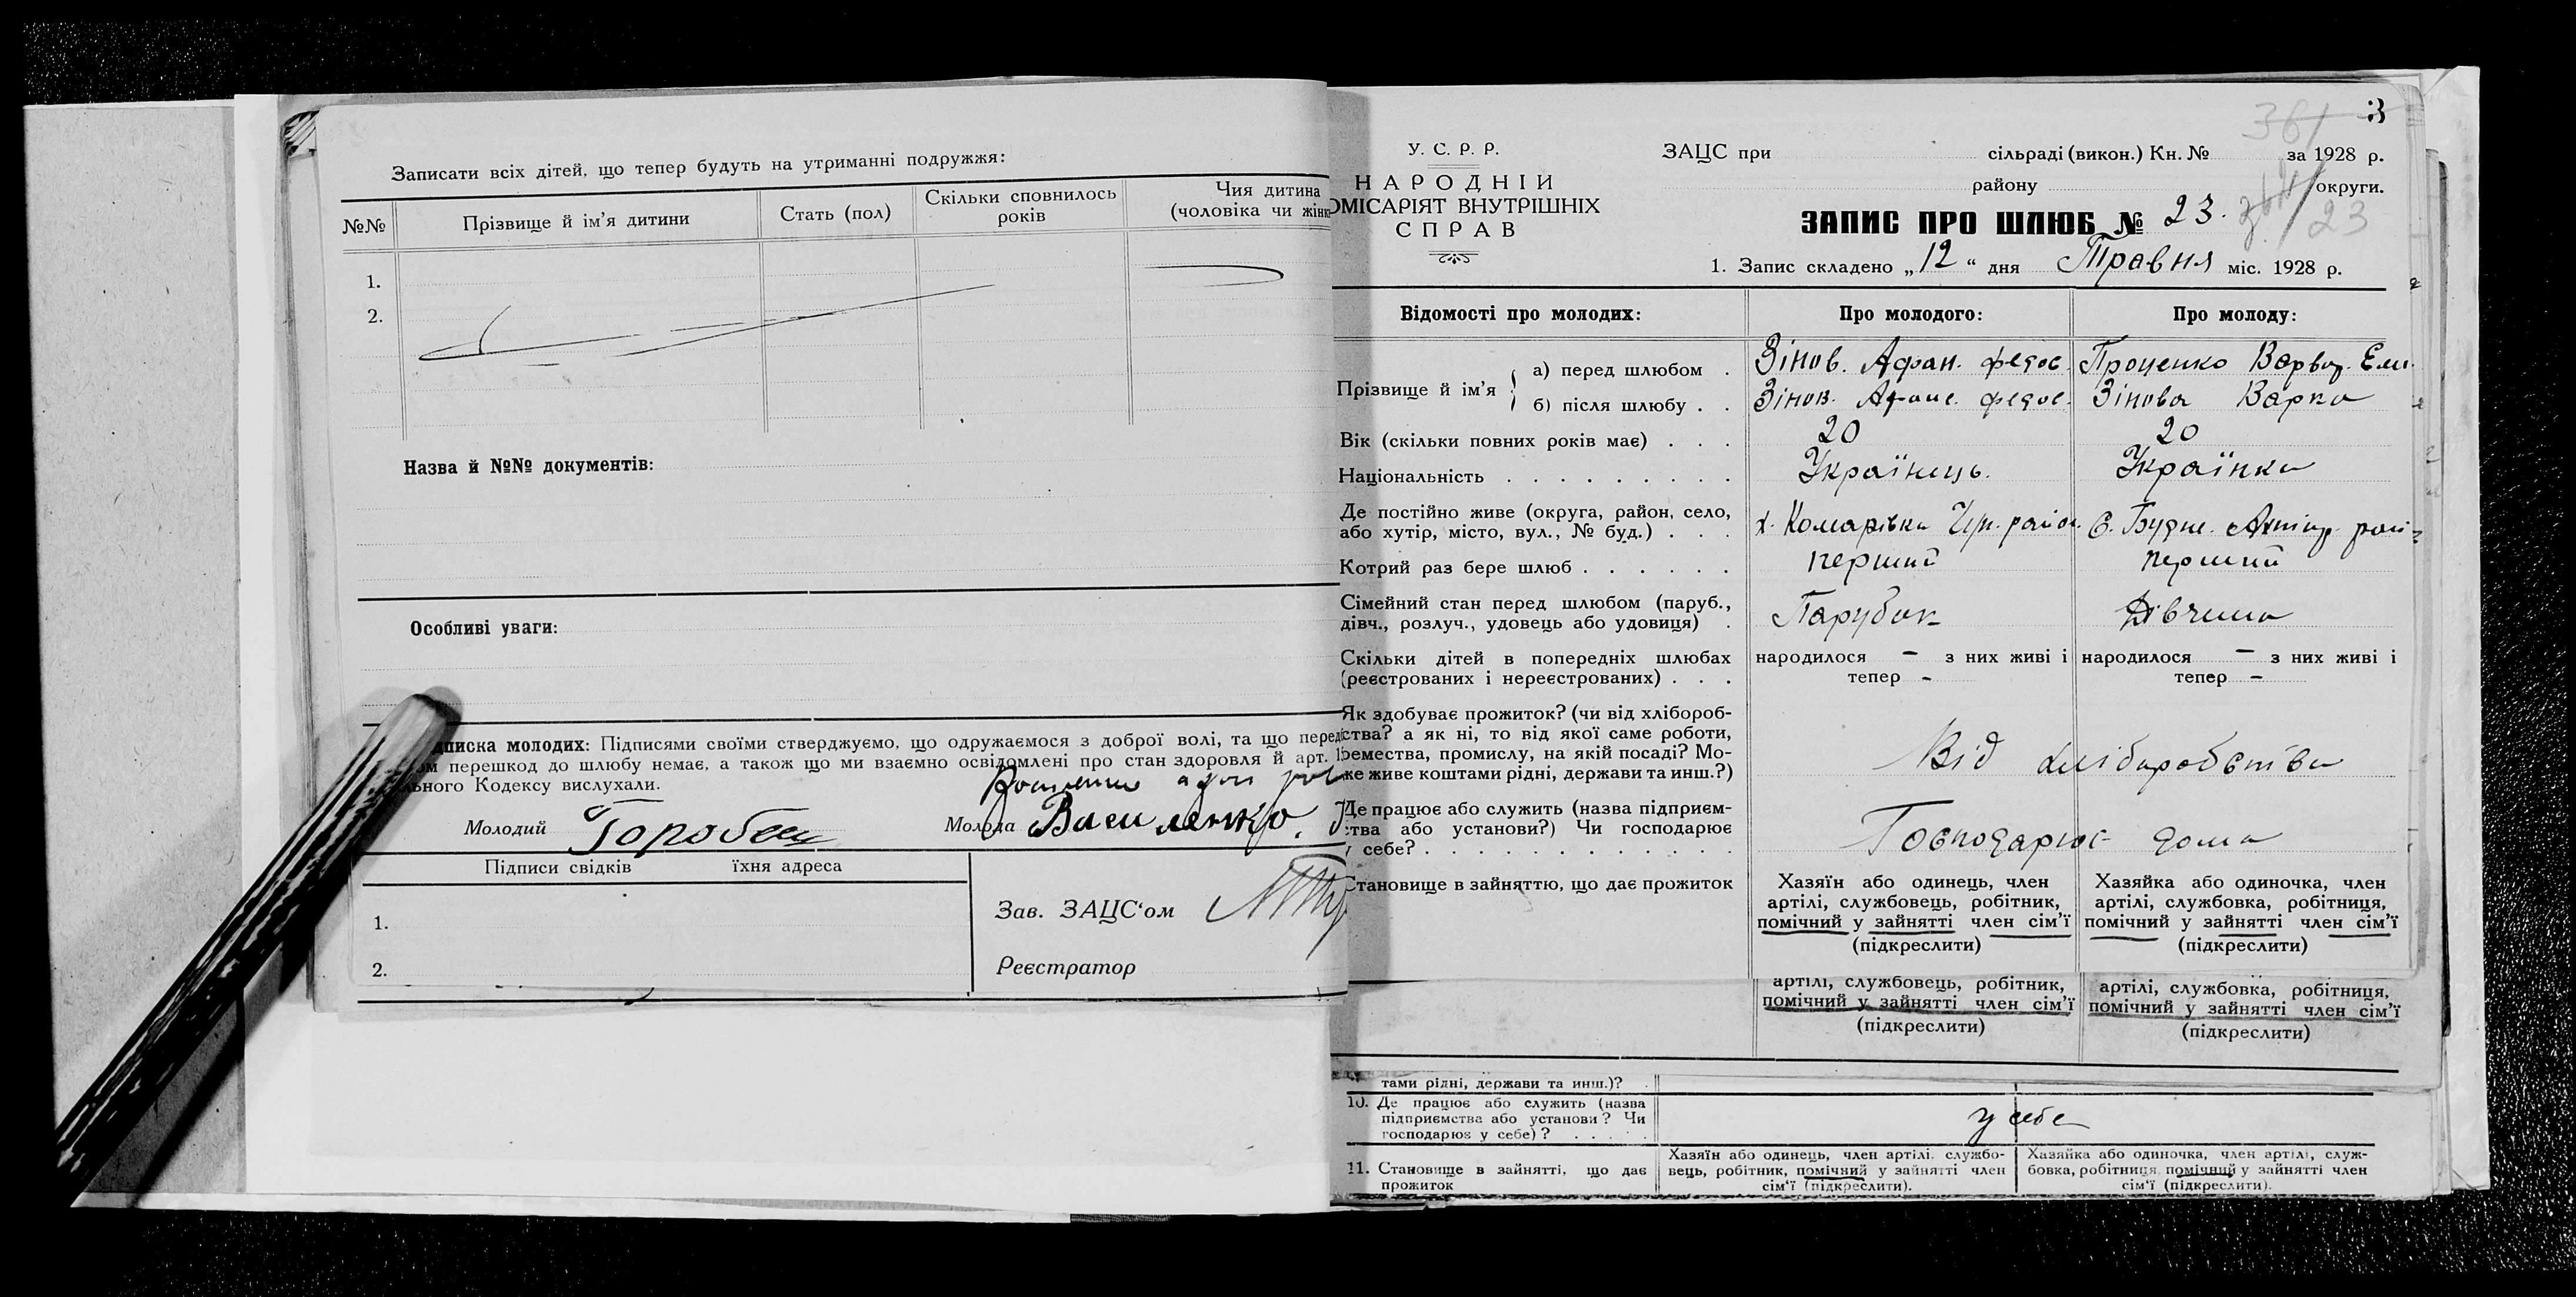 Записати всіх дітей, що тепер будуть на утриманні подружжя:
№№ Прізвище й ім'я дитини Стать (пол) Скільки сповнилось років Чия дитина (чоловіка чи жінк
1.
2.
Назва й №№ документів:
Особливі уваги:
дписка молодих: Підписями своїми стверджуємо, що одружаємося з доброї волі, та що перед
ом перешкод до шлюбу немає, а також що ми взаємно освідомлені про стан здоровля й арт. 1
ьного Кодексу вислухали.
Молодий Горобец Молода Василенко.
Підписи свідків їхня адреса
1.
2.
Зав. ЗАЦС'ом
Реєстратор
3
361
У. С. Р. Р.
НАРОДНІЙ
ОМІСАРІЯТ ВНУТРІШНІХ
СПРАВ
ЗАЦС при сільраді (викон.) Кн. № за 1928 р.
району округи.
ЗАПИС ПРО ШЛЮБ № 23.
23
1. Запис складено „12“ дня Травня міс. 1928 р.
Відомості про молодих: Про молодого: Про молоду:
Прізвище й ім'я
а) перед шлюбом . Зінов. Афан. Федос. Проценко Варвар. Ем.
б) після шлюбу . . Зінов. Афан. Федос. Зінова Варка
Вік (скільки повних років має) . . . 20 20
Національність . . . . . . . . . Українець. Українка
Де постійно живе (округа, район, село,
або хутір, місто, вул., № буд.) . . . х. Комарівка район. С. Будне.
Котрий раз бере шлюб . . . . . . перший перший
Сімейний стан перед шлюбом (паруб.,
дівч., розлуч., удовець або удовиця) . Парубок Дівчина
Скільки дітей в попередніх шлюбах
(реєстрованих і нереєстрованих) . . .
народилося – з них живі і
тепер –
народилося – з них живі і
тепер –
Як здобуває прожиток? (чи від хлібороб-
ства? а як ні, то від якої саме роботи,
ремества, промислу, на якій посаді? Мо-
же живе коштами рідні, держави та инш.?)
Від хліборобства
Де працює або служить (назва підприєм-
ства або установи?) Чи господарює
у себе? . . . . . . . . . . . . .
Господарює дома
Становище в зайняттю, що дає прожиток
Хазяїн або одинець, член
артілі, службовець, робітник,
помічний у зайнятті член сім'ї
(підкреслити)
Хазяйка або одиночка, член
артілі, службовка, робітниця,
помічний у зайнятті член сім'ї
(підкреслити)
артілі, службовець, робітник,
помічний у зайнятті член сім'ї
(підкреслити)
артілі, службовка, робітниця,
помічний у зайнятті член сім'ї
(підкреслити)
тами рідні, держави та инш.)?
10. Де працює або служить (назва
підприємства або установи? Чи
господарює у себе)? . . . . .
у себе
11. Становище в зайнятті, що дає
прожиток
Хазяїн або одинець, член артілі, службо-
вець, робітник, помічний у зайнятті член
сім'ї (підкреслити).
Хазяйка або одиночка, член артілі, служ-
бовка, робітниця, помічний у зайнятті член
сім'ї (підкреслити).